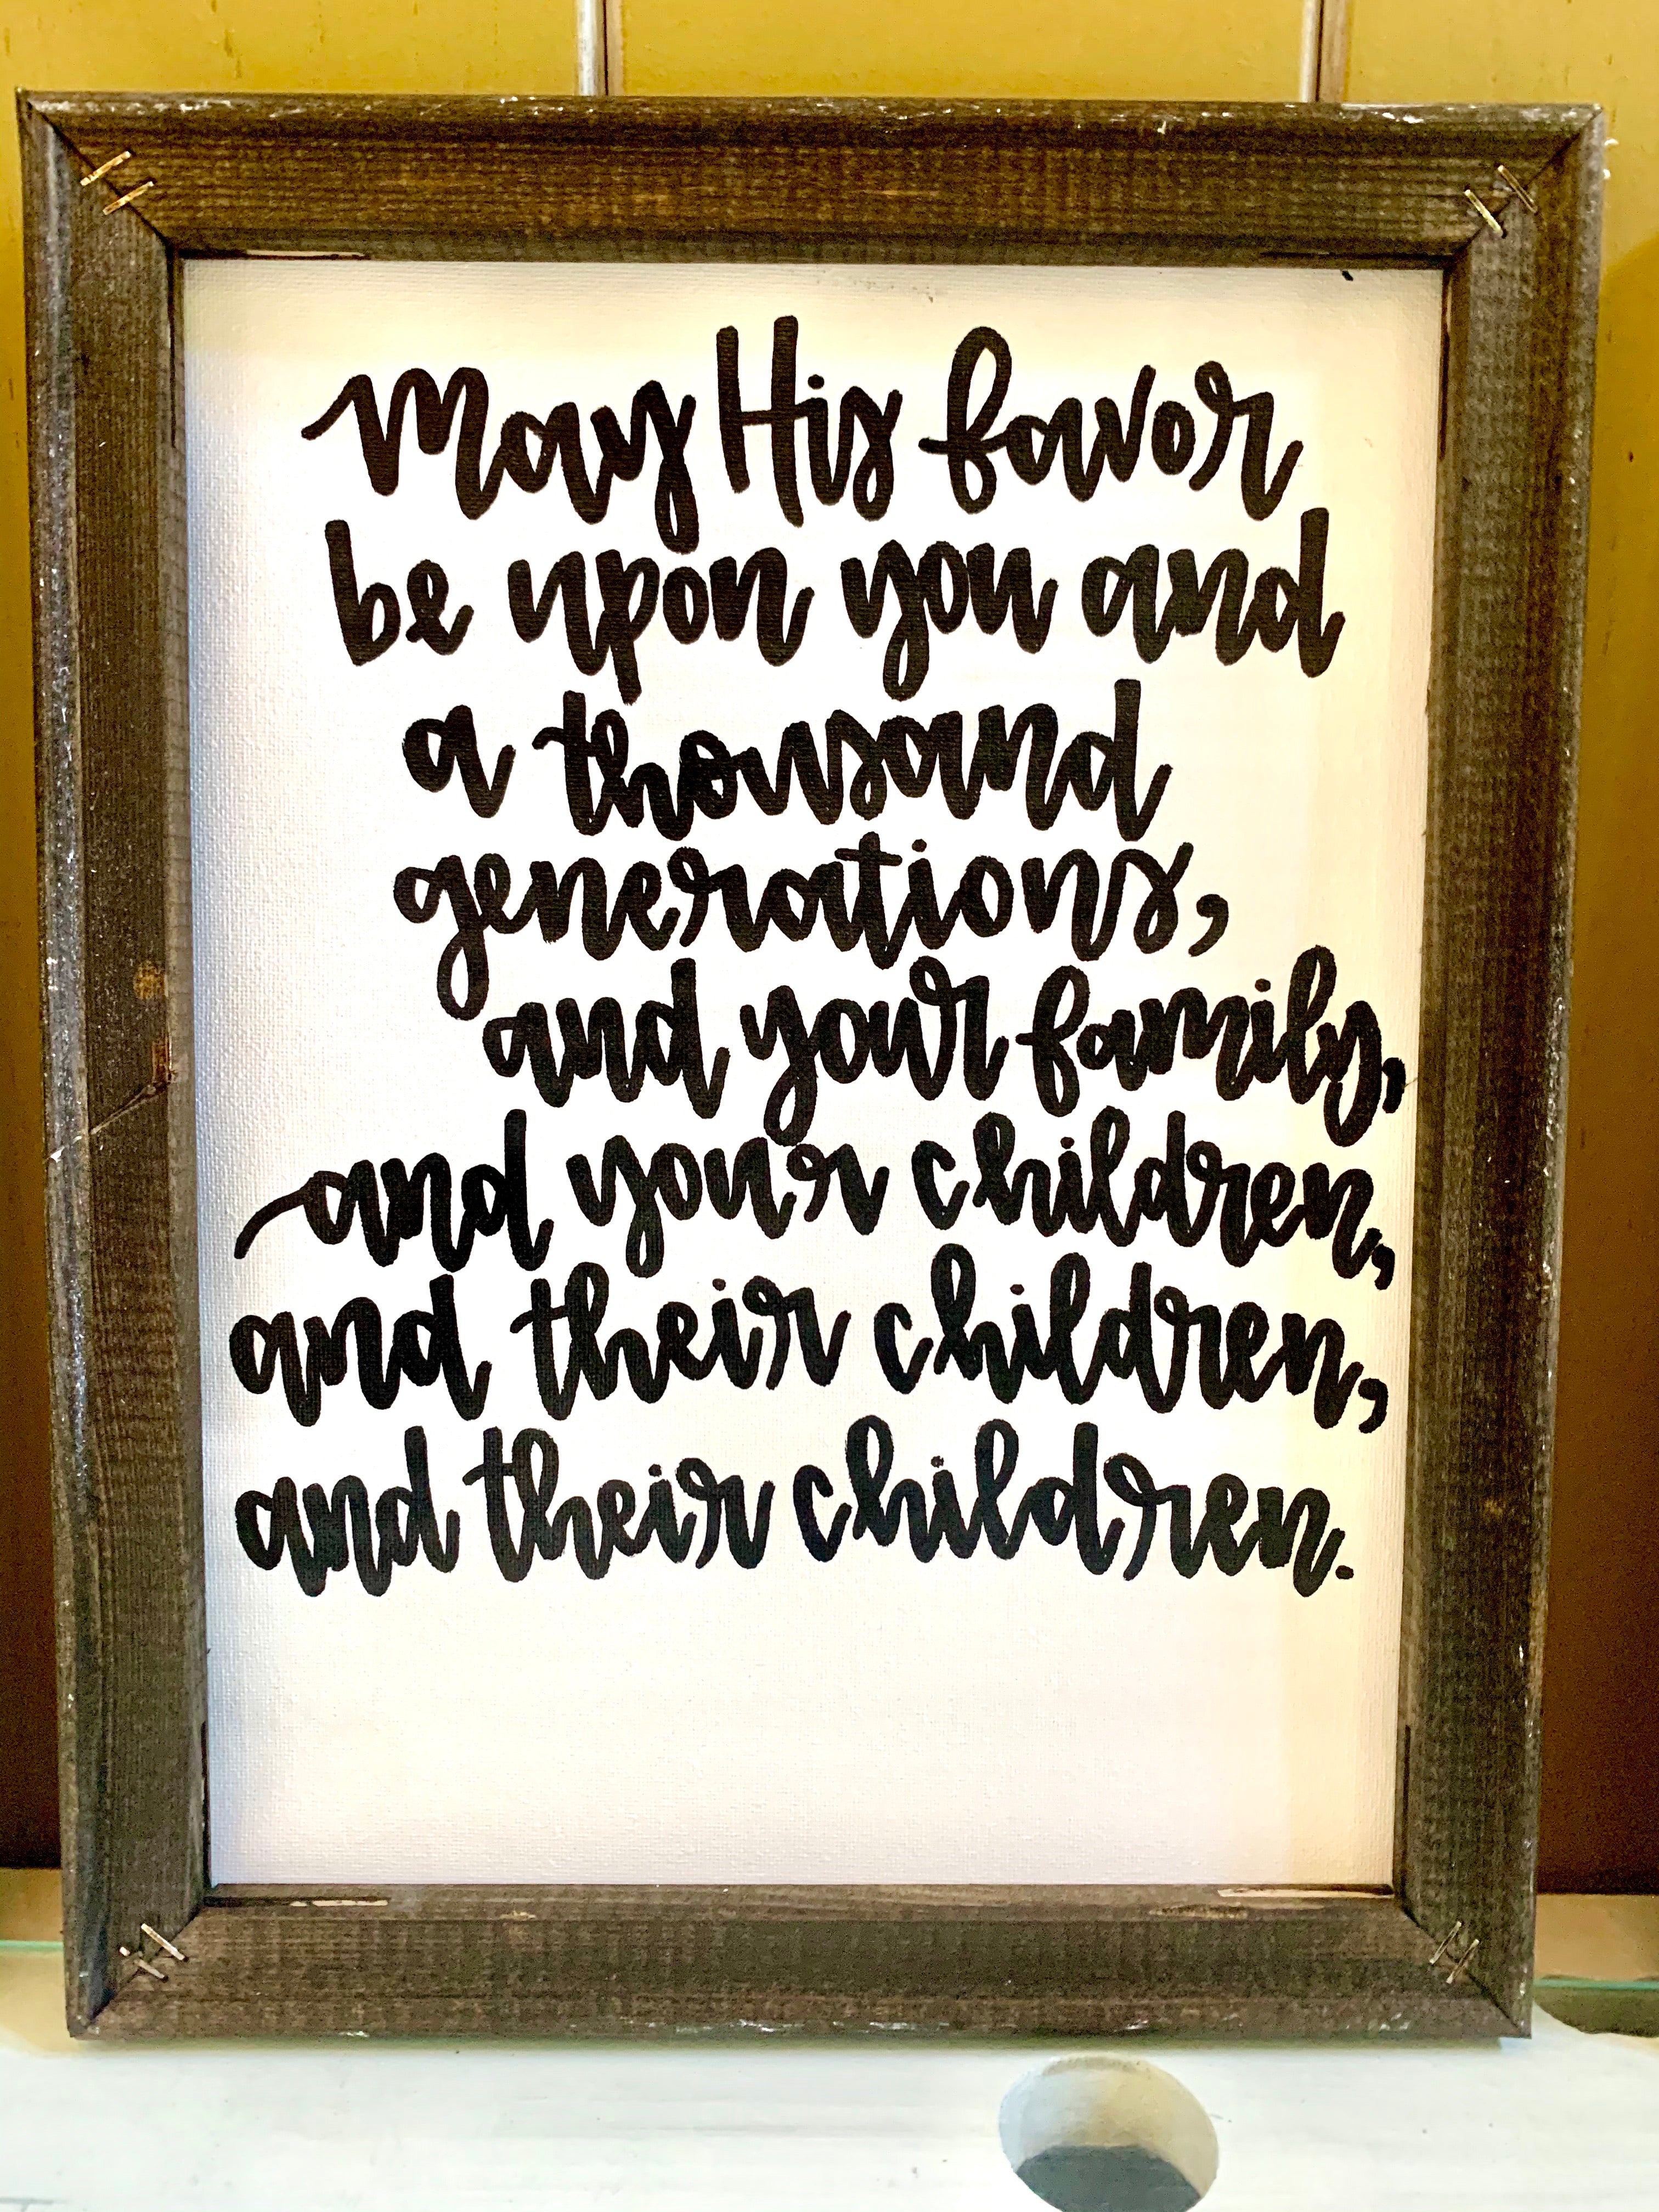 May His favor
be upon you and
a thousand
generations,
and your family,
and your children,
and their children,
and their children.